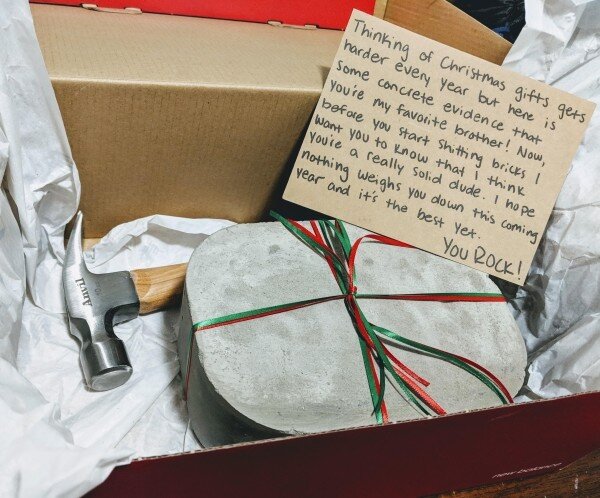 Thinking of Christmas gifts gets
harder every year but here is
some concrete evidence that
you're my favorite brother! Now,
before you start shitting bricks I
want you to know that I think
you're a really solid dude. I hope
nothing weighs you down this coming
year and it's the best yet.
You Rock!
new balance